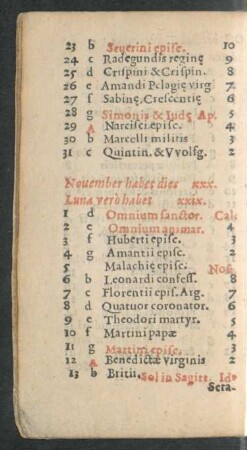 23 b Severini episc. 10
24 c Radegundis reginę 9
25 d Crispini & Crispin. 8
26 e Amandi Pelagię virg 7
27 f Sabinę, Crescentię 6
28 g Simonis & Iudę Ap. 5
29 A Narcisci episc. 4
30 b Marcelli militis 3
31 c Quintin. & Vvolfg. 2
November habet dies xxx.
Luna verò habet xxix.
1 d Omnium sanctor. Cale
2 e Omnium animar. 4
3 f Huberti episc. 3
4 g Amantii episc. 2
5 Malachię episc. Nos.
6 b Leonardi confess. 8
7 c Florentii epis. Arg. 7
8 d Quatuor coronator. 6
9 e Theodori martyr. 5
10 f Martini papæ 4
11 g Martini episc. 3
12 A Benedictæ virginis 2
13 b Britii, Sol in Sagitt. Id
Sera-